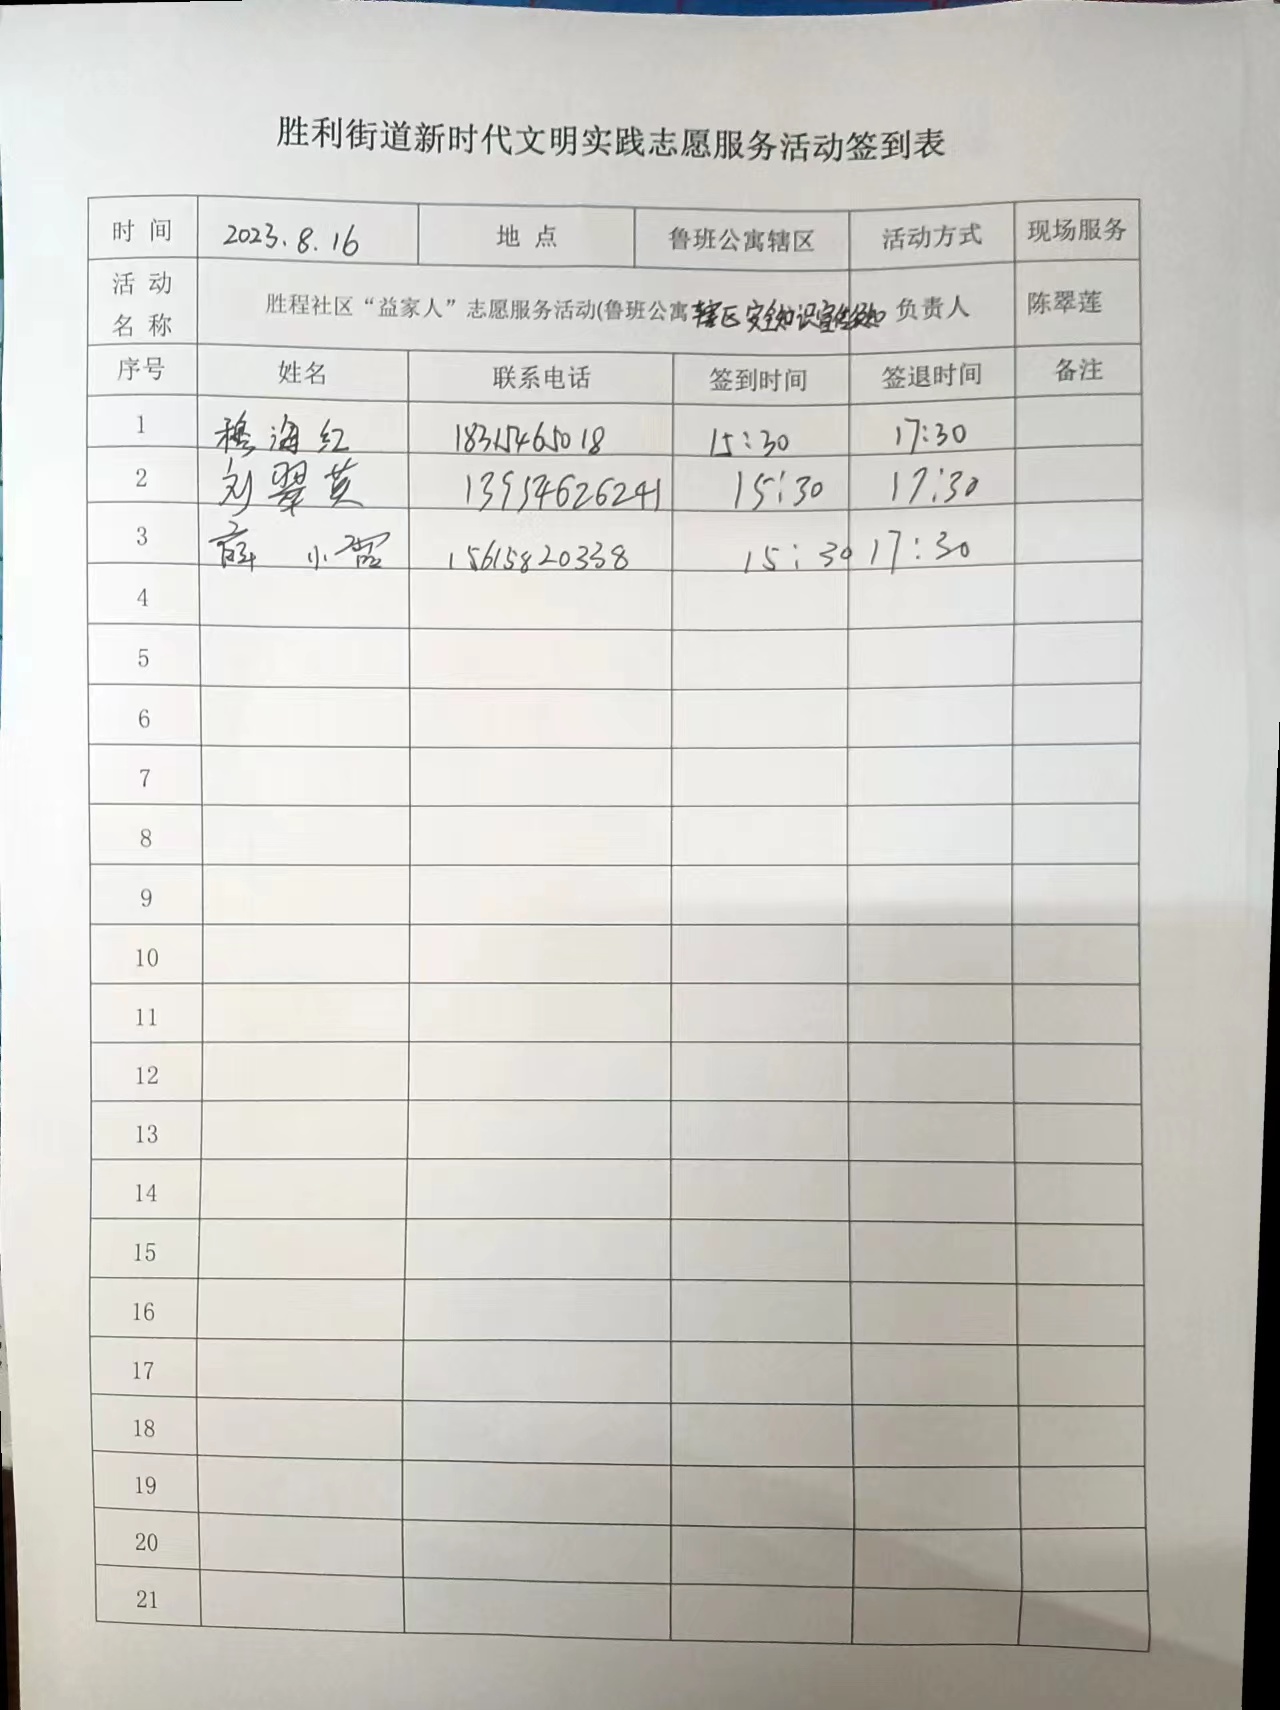 胜利街道新时代文明实践志愿服务活动签到表
时 间 2023.8.16 地 点 鲁班公寓辖区 活动方式 现场服务
活 动 名 称 胜程社区“益家人”志愿服务活动(鲁班公寓辖区安全知识宣传 负责人 陈翠莲
序号 姓名 联系电话 签到时间 签退时间 备注
1 穆海红 18315465018 15:30 17:30
2 刘翠英 13954626241 15:30 17:30
3 薛小 15615820338 15:30 17:30
4
5
6
7
8
9
10
11
12
13
14
15
16
17
18
19
20
21